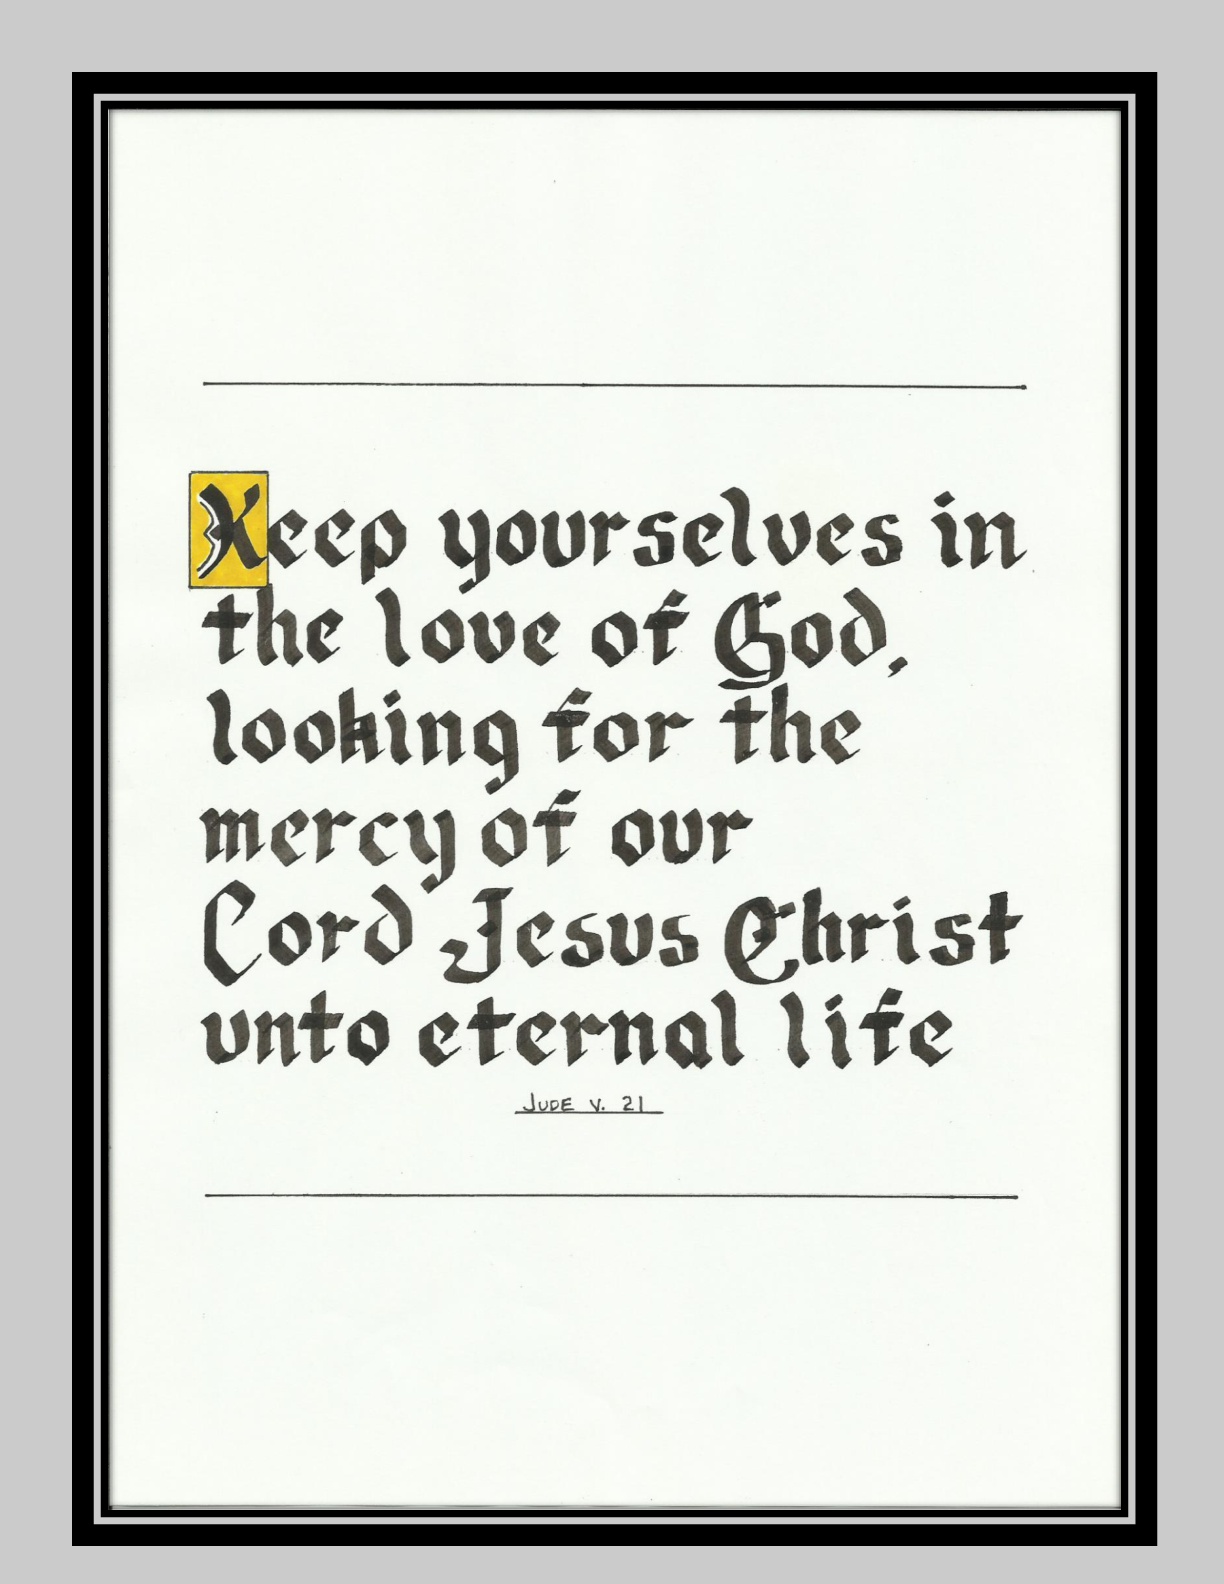 Keep yourselves in
the love of God,
looking for the
mercy of our
Lord Jesus Christ
unto eternal life
JUDE V. 21